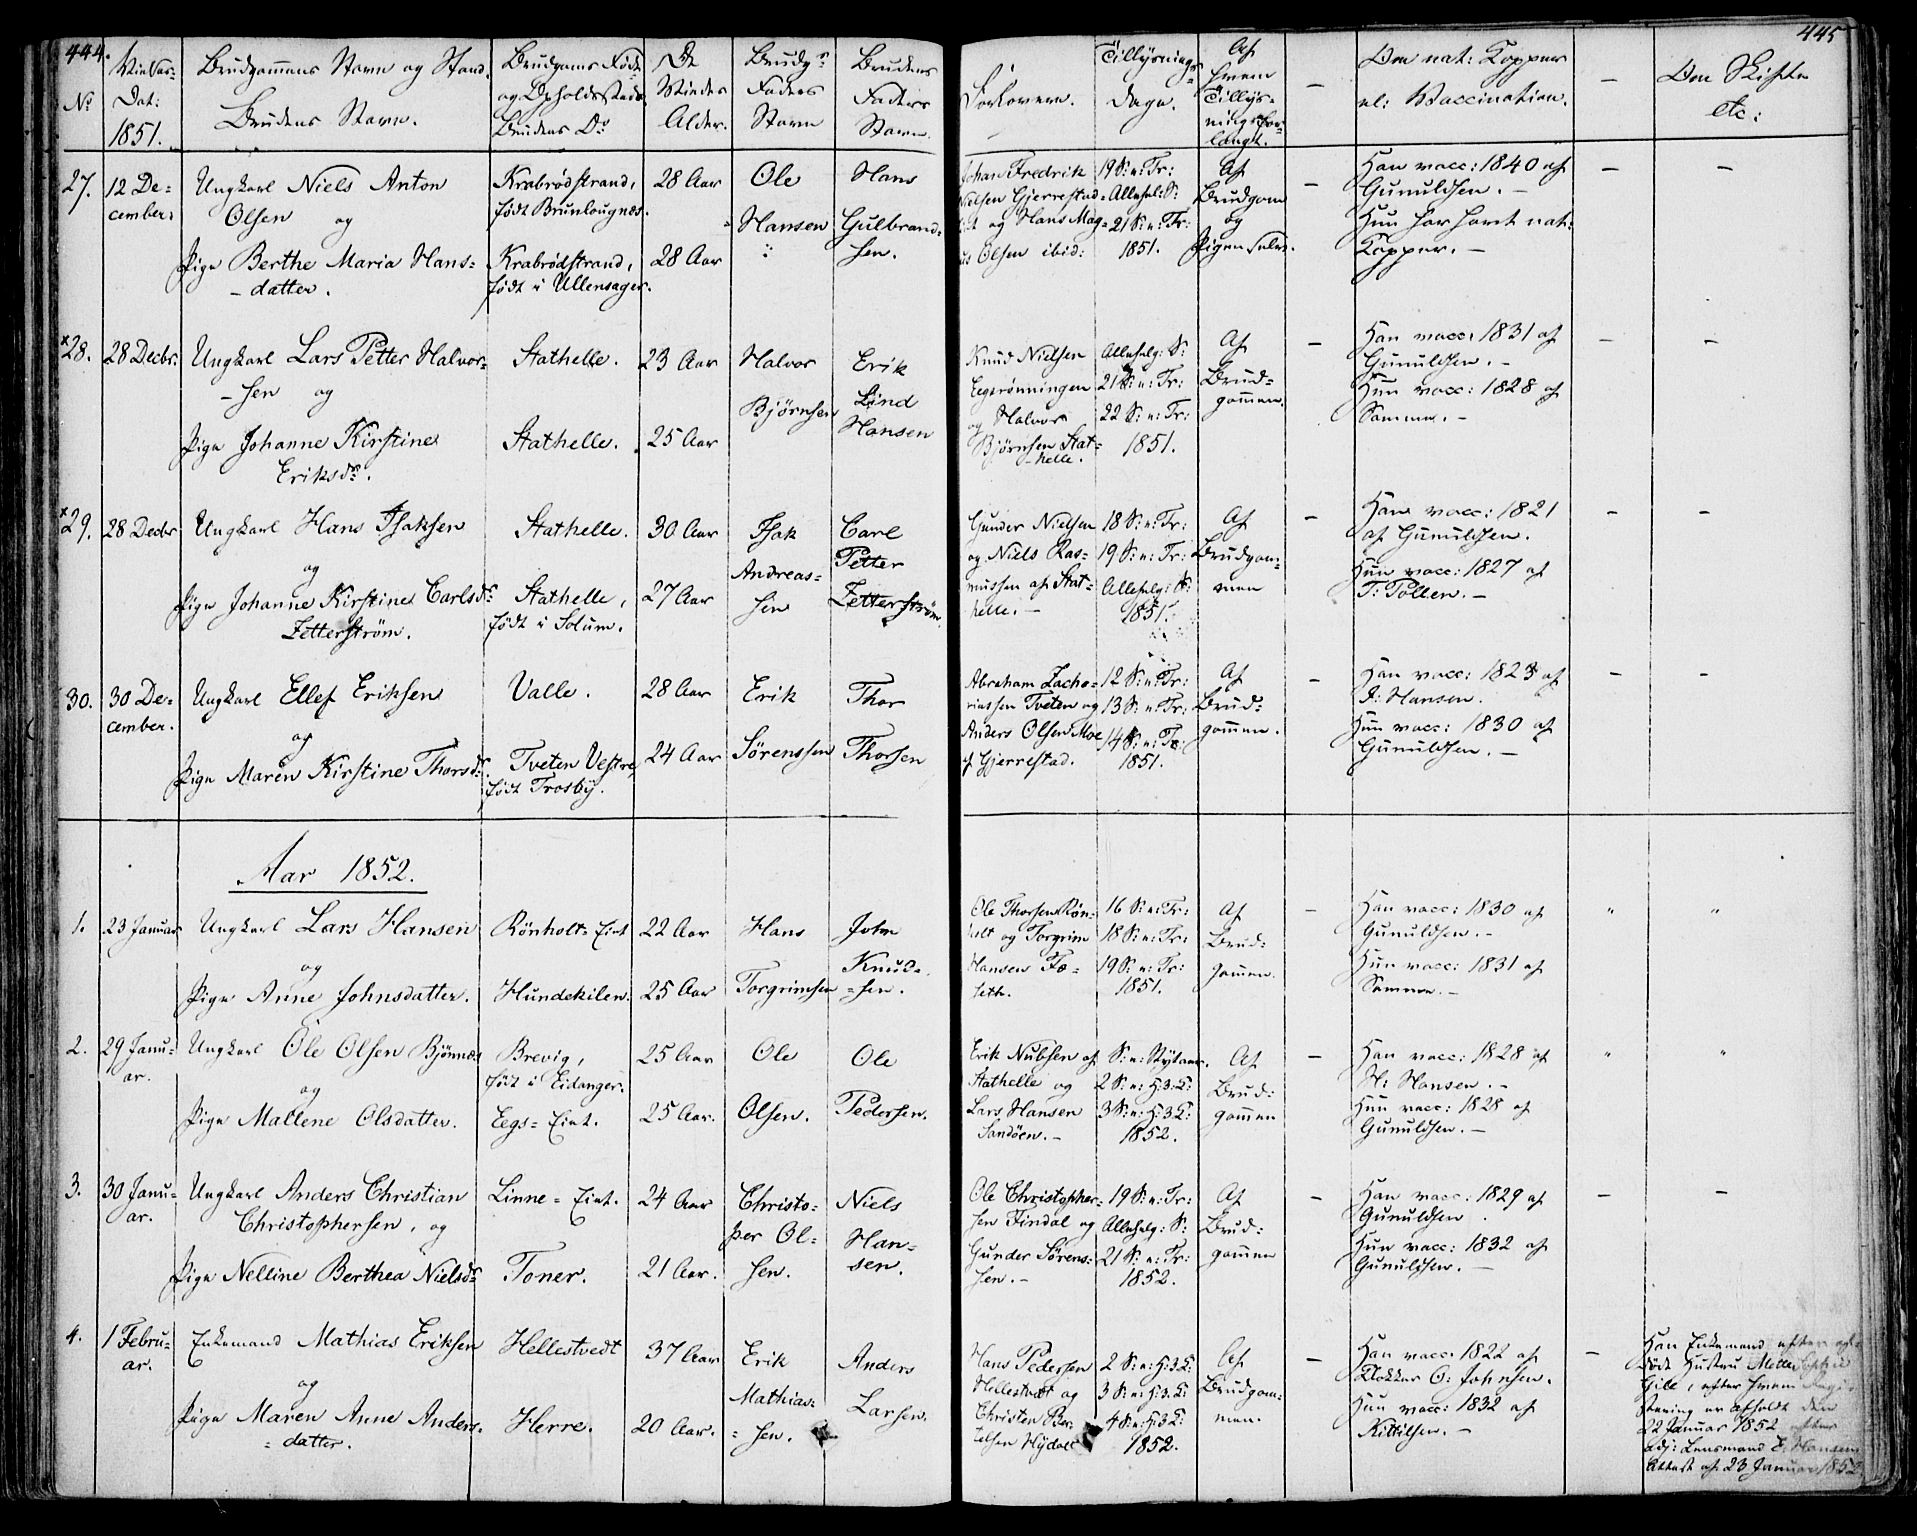 444.
No
Vielses-
Dat:
1851.
Brudgommens Navn og Stand.
Brudens Navn.
Brudgoms Føde
og Opholdssted.
Brudens Do
De
Viedes
Alder.
Brudgs
Faders
Navn
Brudens
Faders
Navn.
27.
12 De=
cember.
Ungkarl Niels Anton
Olsen og
Pige Berthe Maria Hans=
- datter.
Krabrødstrand,
født Brunlougnæs.
Krabrødstrand,
født i Ullensager.
28 Aar
28 Aar
Ole
Hansen
Hans
Gulbrand=
sen.
x28.
28 Decbr.
Ungkarl Lars Petter Halvor=
- sen og
Pige Johanne Kirstine
Eriksdr.
Stathelle.
Stathelle.
23 Aar
25 Aar
Halvor
Bjørnsen
Erik
Lind
Hansen
x29.
28 Decbr
Ungkarl Hans Isaksen
og
Pige Johanne Kirstine Carlsdr
Zetterstrøm.
Stathelle.
Stathelle,
født i Solum.
30 Aar
27 Aar
Isak
Andreas=
sen
Carl
Petter
Zetterstrøm.
30.
30 De=
cember.
Ungkarl Ellef Eriksen
og
Pige Maren Kirstine Thorsdr.
Valle.
Tveten Vestre,
født Trosby.
28 Aar
24 Aar
Erik
Sørenssen
Thor
Thorsen
Aar 1852.
1.
23 Januar
Ungkarl Lars Hansen
og
Pige Anne Johnsdatter.
Rönholt= Eiet
Hundekilen.
22 Aar
25 Aar
Hans
Torgrimsen
John
Knud=
=sen.
2.
29 Janu=
ar.
Ungkarl Ole Olsen Bjønnes
og
Pige Mallene Olsdatter.
Brevig,
født i Eidanger.
Eegs= Eiet.
25 Aar
25 Aar.
Ole
Olsen.
Ole
Pedersen.
3.
30 Janu=
ar.
Ungkarl Anders Christian
Christophersen, og
Pige Nelline Berthea Nielsdr
Linne= Eiet.
Toner.
24 Aar
21 Aar.
Christo=
pher Ol=
sen.
Niels
Han=
sen.
4.
1 Febru=
ar.
Enkemand Mathias Eriksen
og
Pige Maren Anne Anders=
= datter.
Hellestvedt
Herre.
37 Aar
20 Aar.
Erik
Mathias=
= sen.
Anders
Larsen.
445
Forlovere.
Tillysnings=
Dage.
Af
hvem
Tillys=
ning for=
langt.
-
Om nat: Kopper
el: Vaccination.
-
Om Skifte
etc:
Johan Fredrik
Nielsen Gjerrestad=
og Hans Mag=
Olsen ibid:
19 S: e: Tr:
Allehel: S:
21 S: e: Tr:
1851.
Af
Brudgom
og
Pigen selv.
Han vacc: 1840 af
Gunuldsen. -
Hun har havt nat:
Kopper. -
Knud Nielsen
Eegsrønningen
og Halvor
Bjørnsen Stat=
- helle.
Allehelg: S:
21 S: e: Tr:
22 S: e: Tr:
1851.
Af
Brud=
gommen.
Han vacc: 1831 af
Gunuldsen. -
Hun vacc: 1828 af
Samme. -
Gunder Nielsen
og Niels Ras=
mussen af Stat=
helle. -
18 S: e: Tr:
19 S: e: Tr:
Allehelg: S:
1851.
Af
Brudgom=
men
Han vacc: 1821
af Gunuldsen.
Hun vacc: 1827 af
T: Tollen. -
Abraham Zacha=
riassen Tveten og
Anders Olsen Moe
af Gjerrestad.
12 S: e: Tr:
13 S: e: Tr:
14 S: e: Tr:
1851.
Af
Brud=
gommen.
Han vacc: 1823 af
Hansen.
Hun vacc: 1830 af
Gunuldsen. -
Ole Thorsen Røn=
holt og Torgrim
Hansen Fo=
seth.
16 S: e: Tr:
18 S: e: Tr:
19 S: e: Tr:
1851.
Af
Brud=
gommen.
Han vacc: 1830 af
Gunuldsen. -
Hun vacc: 1831 af
Samme. -
Erik Nubsen af
Stathelle og
Lars Hansen
Sandöen. -
S: e: Nytaar.
2 S: e: H: 3 K:
3 S: e: H: 3 K:
1852.
Af
Brud=
gommen
Han vacc: 1828 af
H: Hansen. -
Hun vacc: 1828 af
Gunuldsen. -
Ole Christopher=
sen Findal og
Gunder Sörens=
sen. -
19 S: e: Tr:
Allehelg: S:
21 S: e: Tr:
1852.
Af
Brud=
gommen
Han vacc: 1829 af
Gunuldsen.
Hun vacc: 1832 af
Gunuldsen. -
Hans Pedersen
Hellestvedt og
Christen
2 S: e: H: 3 K:
3 S: e: H: 3 K:
4 S: e: H: 3 K:
1852.
Af
Brudgom=
men.
Han vacc: 1822 af
Klokker O: Johnsen.
Hun vacc: 1832 af
Kittilsen. -
Han Enkemand efter
død Hustru Mette Sophie
efter hvem
er afholdt den
22 Januar 1852 efter
Lensmand E: Hansens
Attest af 23 Januar 1852.